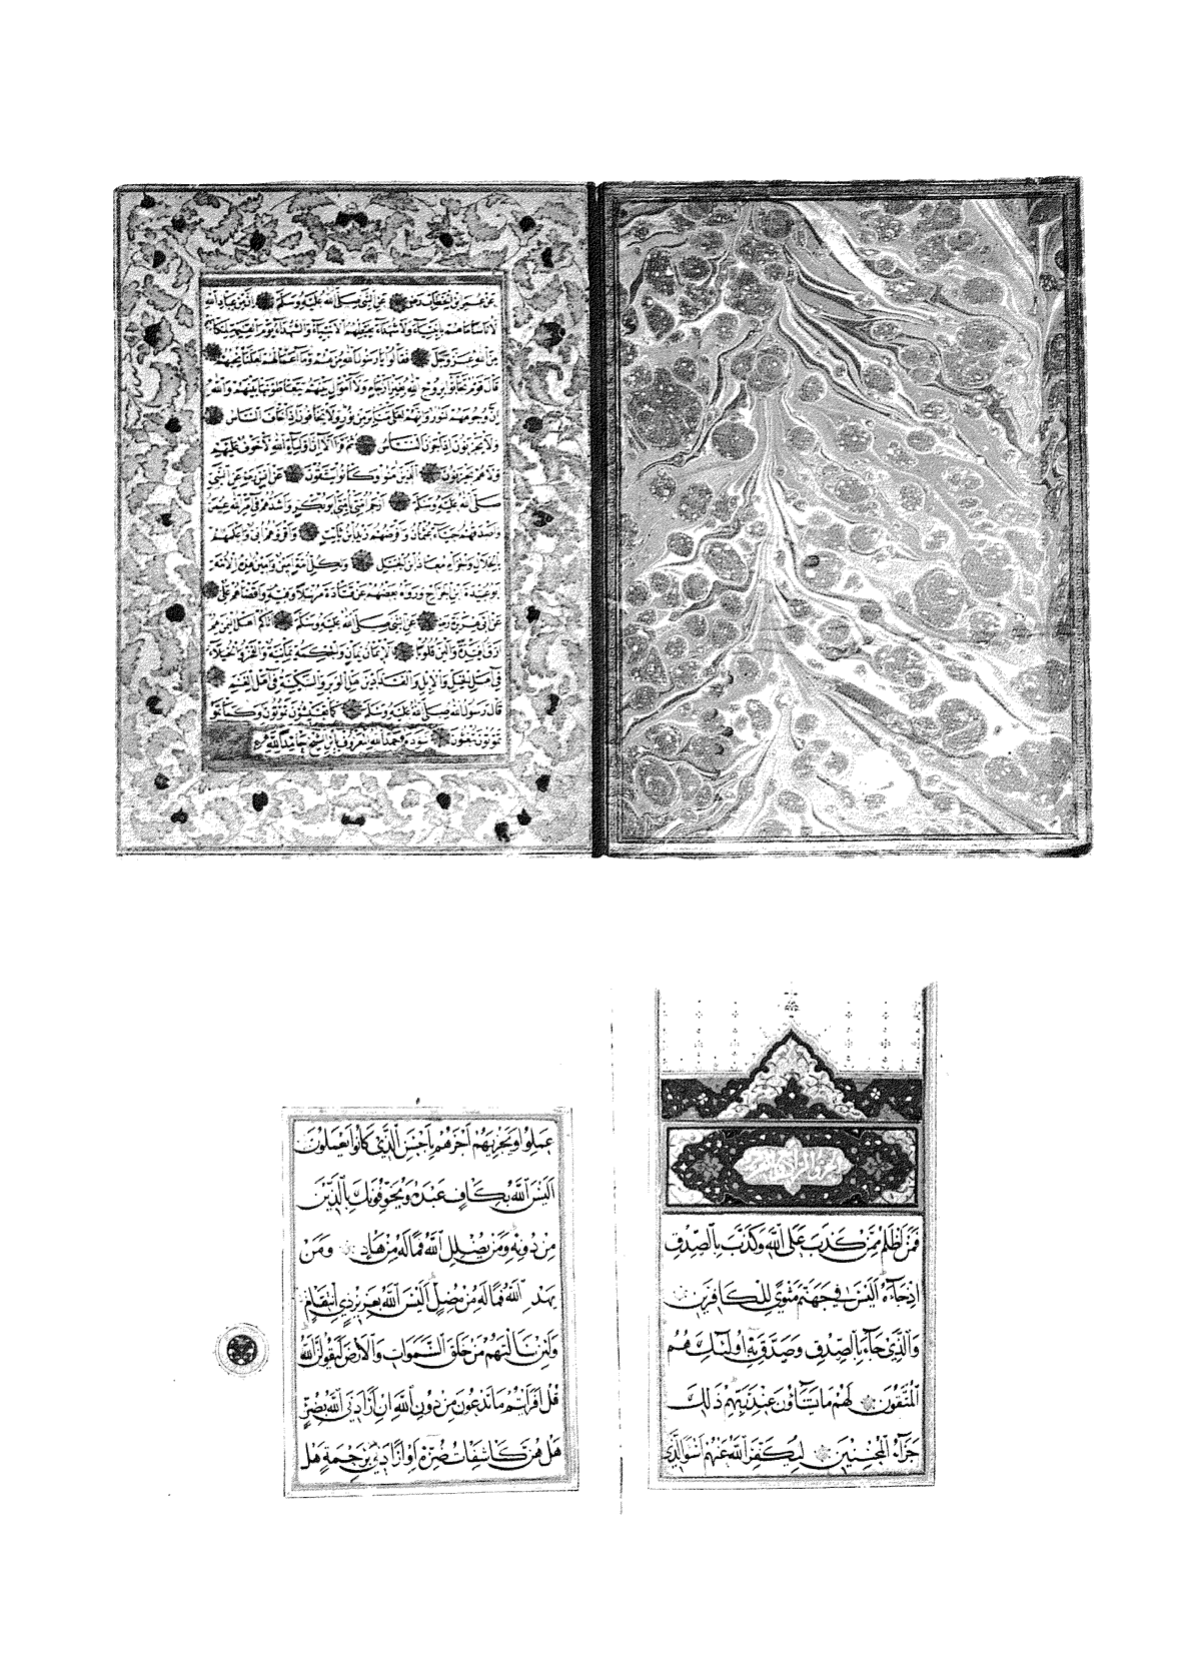 عن عمر بن الخطاب رضه عن النبي صلى الله عليه وسلم ان من عباد الله
لاناسا ما هم بانبياء ولا شهداء يغبطهم الانبياء والشهداء يوم القيمة
من الله عز وجل فقالوا يا رسول الله من هم وما اعمالهم لعلنا نحبهم
قال قوم تحابوا بروح الله ولا اموال بينهم يتعاطونها بينهم والله
ان وجوههم لنور وانهم لعلى منابر من نور ولا يخافون اذا خاف الناس
ولا يحزنون اذا حزن الناس ثم قرا الا ان اولياء الله لا خوف عليهم
ولا هم يحزنون الذين امنوا وكانوا يتقون عن انس رضه عن النبي
صلى الله عليه وسلم ارحم امتي بامتي ابو بكر واشدهم في امر الله عمر
واصدقهم حياء عثمان وافرضهم زيد ابن ثابت واقرؤهم ابي واعلمهم
بالحلال والحرام معاذ ابن الجبل ولكل امة امين وامين هذه الامة
ابو عبيدة ابن الجراح ورواه بعضهم عن قتادة مرسلا وفيه واقضاهم علي
عن ابي هريرة رضه عن النبي صلى الله عليه وسلم اتاكم اهل اليمن هم
ارق افئدة والين قلوبا الايمان يمان والحكمة يمانية والفخر والخيلاء
في اهل الخيل والابل والفدادين اهل الوبر والسكينة في اهل الغنم
قال رسول الله صلى الله عليه وسلم كما تعيشون تموتون وكما
تموتون تبعثون سوده حمد الله المعروف بابن الشيخ حامدا لله
فَمَنْ اَظْلَمُ مِمَّنْ كَذَبَ عَلَى اللّٰهِ وَكَذَّبَ بِالصِّدْقِ
اِذْ جَآءَهُ اَلَيْسَ فِي جَهَنَّمَ مَثْوًى لِلْكَافِرِينَ
وَالَّذِي جَآءَ بِالصِّدْقِ وَصَدَّقَ بِهِ اُولٰئِكَ هُمُ
الْمُتَّقُونَ لَهُمْ مَا يَشَآؤُنَ عِنْدَ رَبِّهِمْ ذٰلِكَ
جَزَآءُ الْمُحْسِنِينَ لِيُكَفِّرَ اللّٰهُ عَنْهُمْ اَسْوَاَ الَّذِي
عَمِلُوا وَيَجْزِيَهُمْ اَجْرَهُمْ بِاَحْسَنِ الَّذِي كَانُوا يَعْمَلُونَ
اَلَيْسَ اللّٰهُ بِكَافٍ عَبْدَهُ وَيُخَوِّفُونَكَ بِالَّذِينَ
مِنْ دُونِهِ وَمَنْ يُضْلِلِ اللّٰهُ فَمَا لَهُ مِنْ هَادٍ وَمَنْ
يَهْدِ اللّٰهُ فَمَا لَهُ مِنْ مُضِلٍّ اَلَيْسَ اللّٰهُ بِعَزِيزٍ ذِي انْتِقَامٍ
وَلَئِنْ سَاَلْتَهُمْ مَنْ خَلَقَ السَّمٰوَاتِ وَالْاَرْضَ لَيَقُولُنَّ اللّٰهُ
قُلْ اَفَرَاَيْتُمْ مَا تَدْعُونَ مِنْ دُونِ اللّٰهِ اِنْ اَرَادَنِيَ اللّٰهُ بِضُرٍّ
هَلْ هُنَّ كَاشِفَاتُ ضُرِّهِ اَوْ اَرَادَنِي بِرَحْمَةٍ هَلْ